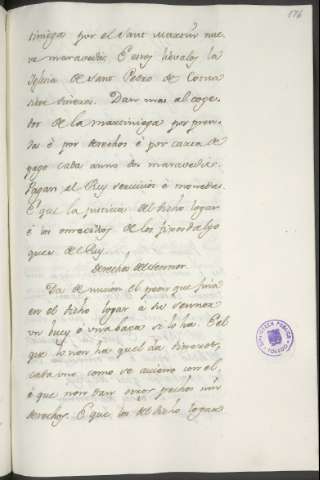 176
tiniega por el Sant Martin nue-
ve maravedis. E estos lievalos la
Iglesia de Sant Pedro de Corcea
siete dineros. Dan mas al coge-
dor de la martiniega por pren-
das é por derechos é por carta de
pago cada anno dos maravedis.
Pagan al Rey servicios é monedas.
E que la justicia del dicho logar
é los omecidos de los fijosdalgo
que es del Rey.
Derechos del Sennor.
Da de nuncion el peon que fina
en el dicho logar a su sennor
un buey ó una baca si lo ha. E el
que lo non ha quel da dineros,
cada uno como se aviene con el,
é que non dan otros pechos nin
derechos. E que los del dicho logar
BIBLIOTECA PUBLICA
TOLEDO